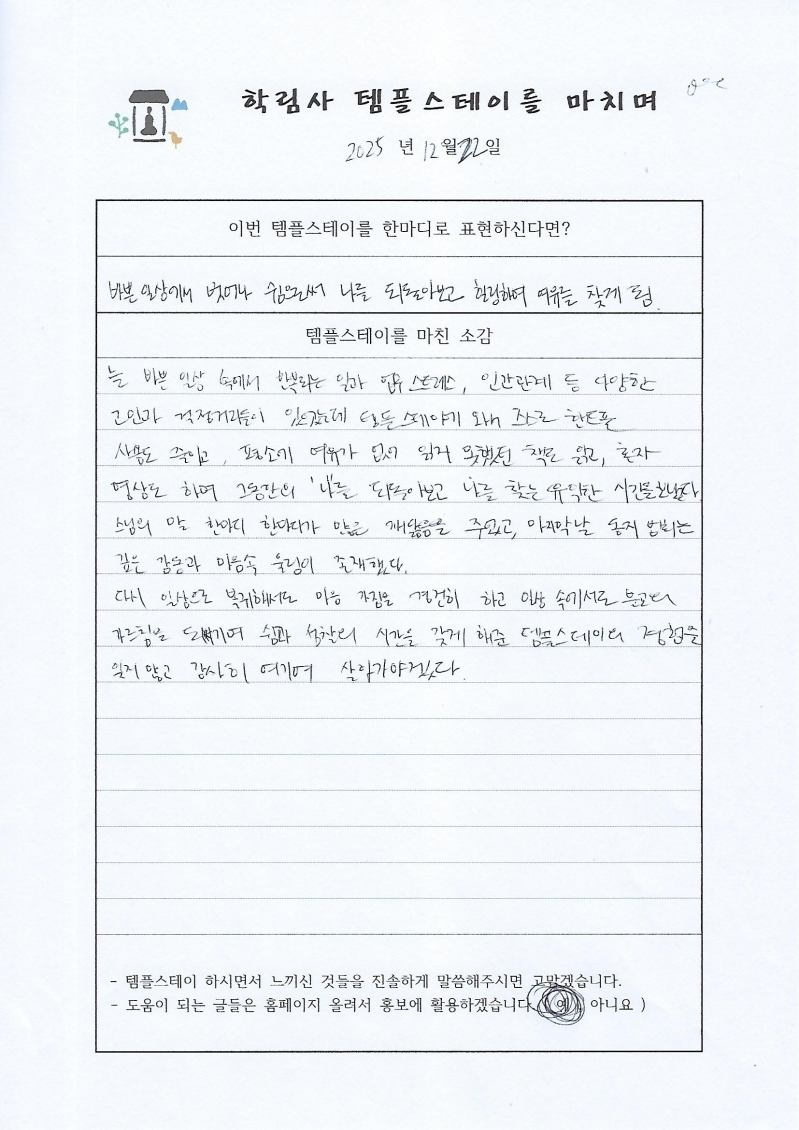 학림사 템플스테이를 마치며
2025 년 12월 22일
이번 템플스테이를 한마디로 표현하신다면?
바쁜 일상에서 벗어나 쉼으로써 나를 되돌아보고 힐링하여 여유를 찾게 됨.
템플스테이를 마친 소감
늘 바쁜 일상 속에서 반복되는 일과 업무 스트레스, 인간관계 등 다양한
고민과 걱정거리들이 있었는데 템플스테이에 와서 핸드폰
사용도 줄이고, 평소에 여유가 없어 읽지 못했던 책도 읽고, 혼자
명상도 하며 그동안의 '나'를 되돌아보고 나를 찾는 유익한 시간을 보냈다
스님의 말 한마디 한마디가 많은 깨달음을 주었고, 마지막날 동지 법회는
깊은 감동과 마음속 울림이 존재했다.
다시 일상으로 복귀해서도 마음 가짐을 경건히 하고 일상 속에서도 부처의
가르침을 되새기며 쉼과 성찰의 시간을 갖게 해준 템플스테이의 경험을
잊지 않고 감사히 여기며 살아가야겠다.
- 템플스테이 하시면서 느끼신 것들을 진솔하게 말씀해주시면 고맙겠습니다.
- 도움이 되는 글들은 홈페이지 올려서 홍보에 활용하겠습니다 ( 예 , 아니요 )